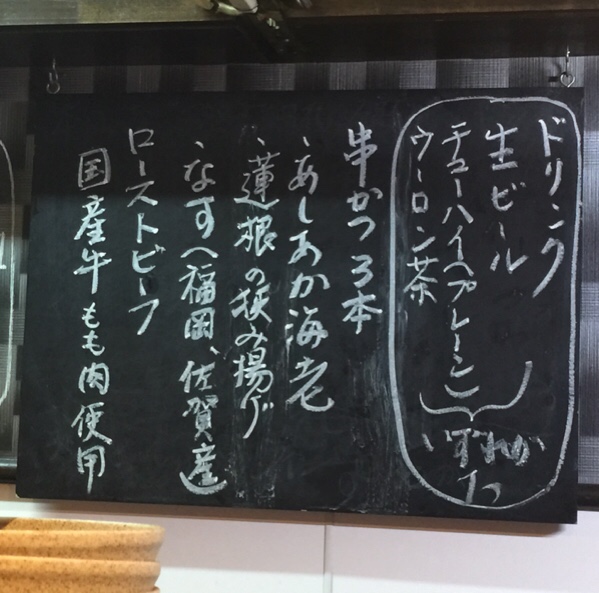 ドリンク
生ビール
チューハイ(プレーン)
ウーロン茶
いずれか
1つ
串かつ3本
・あしあか海老
・蓮根の挟み揚げ
・なす(福岡、佐賀産)
ローストビーフ
国産牛もも肉使用